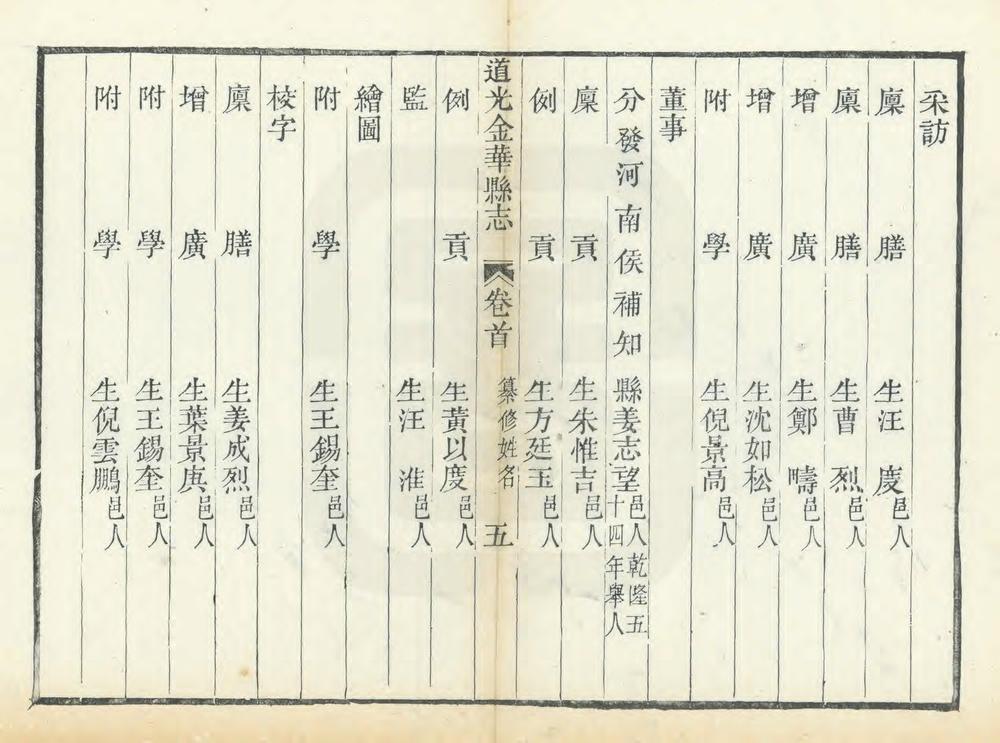 采訪
廩膳生汪慶邑人
廩膳生曹烈邑人
增廣生鄭疇邑人
增廣生沈如松邑人
附學生倪景高邑人
董事
分發河南侯補知縣姜志望邑人乾隆五十四年舉人
廩貢生朱惟吉邑人
例貢生方廷玉邑人
道光金華縣志 卷首 纂修姓名 五
例貢生黃以度邑人
監生汪淮邑人
繪圖
附學生王錫奎邑人
校字
廩膳生姜成烈邑人
增廣生葉景庚邑人
附學生王錫奎邑人
附學生倪雲鵬邑人